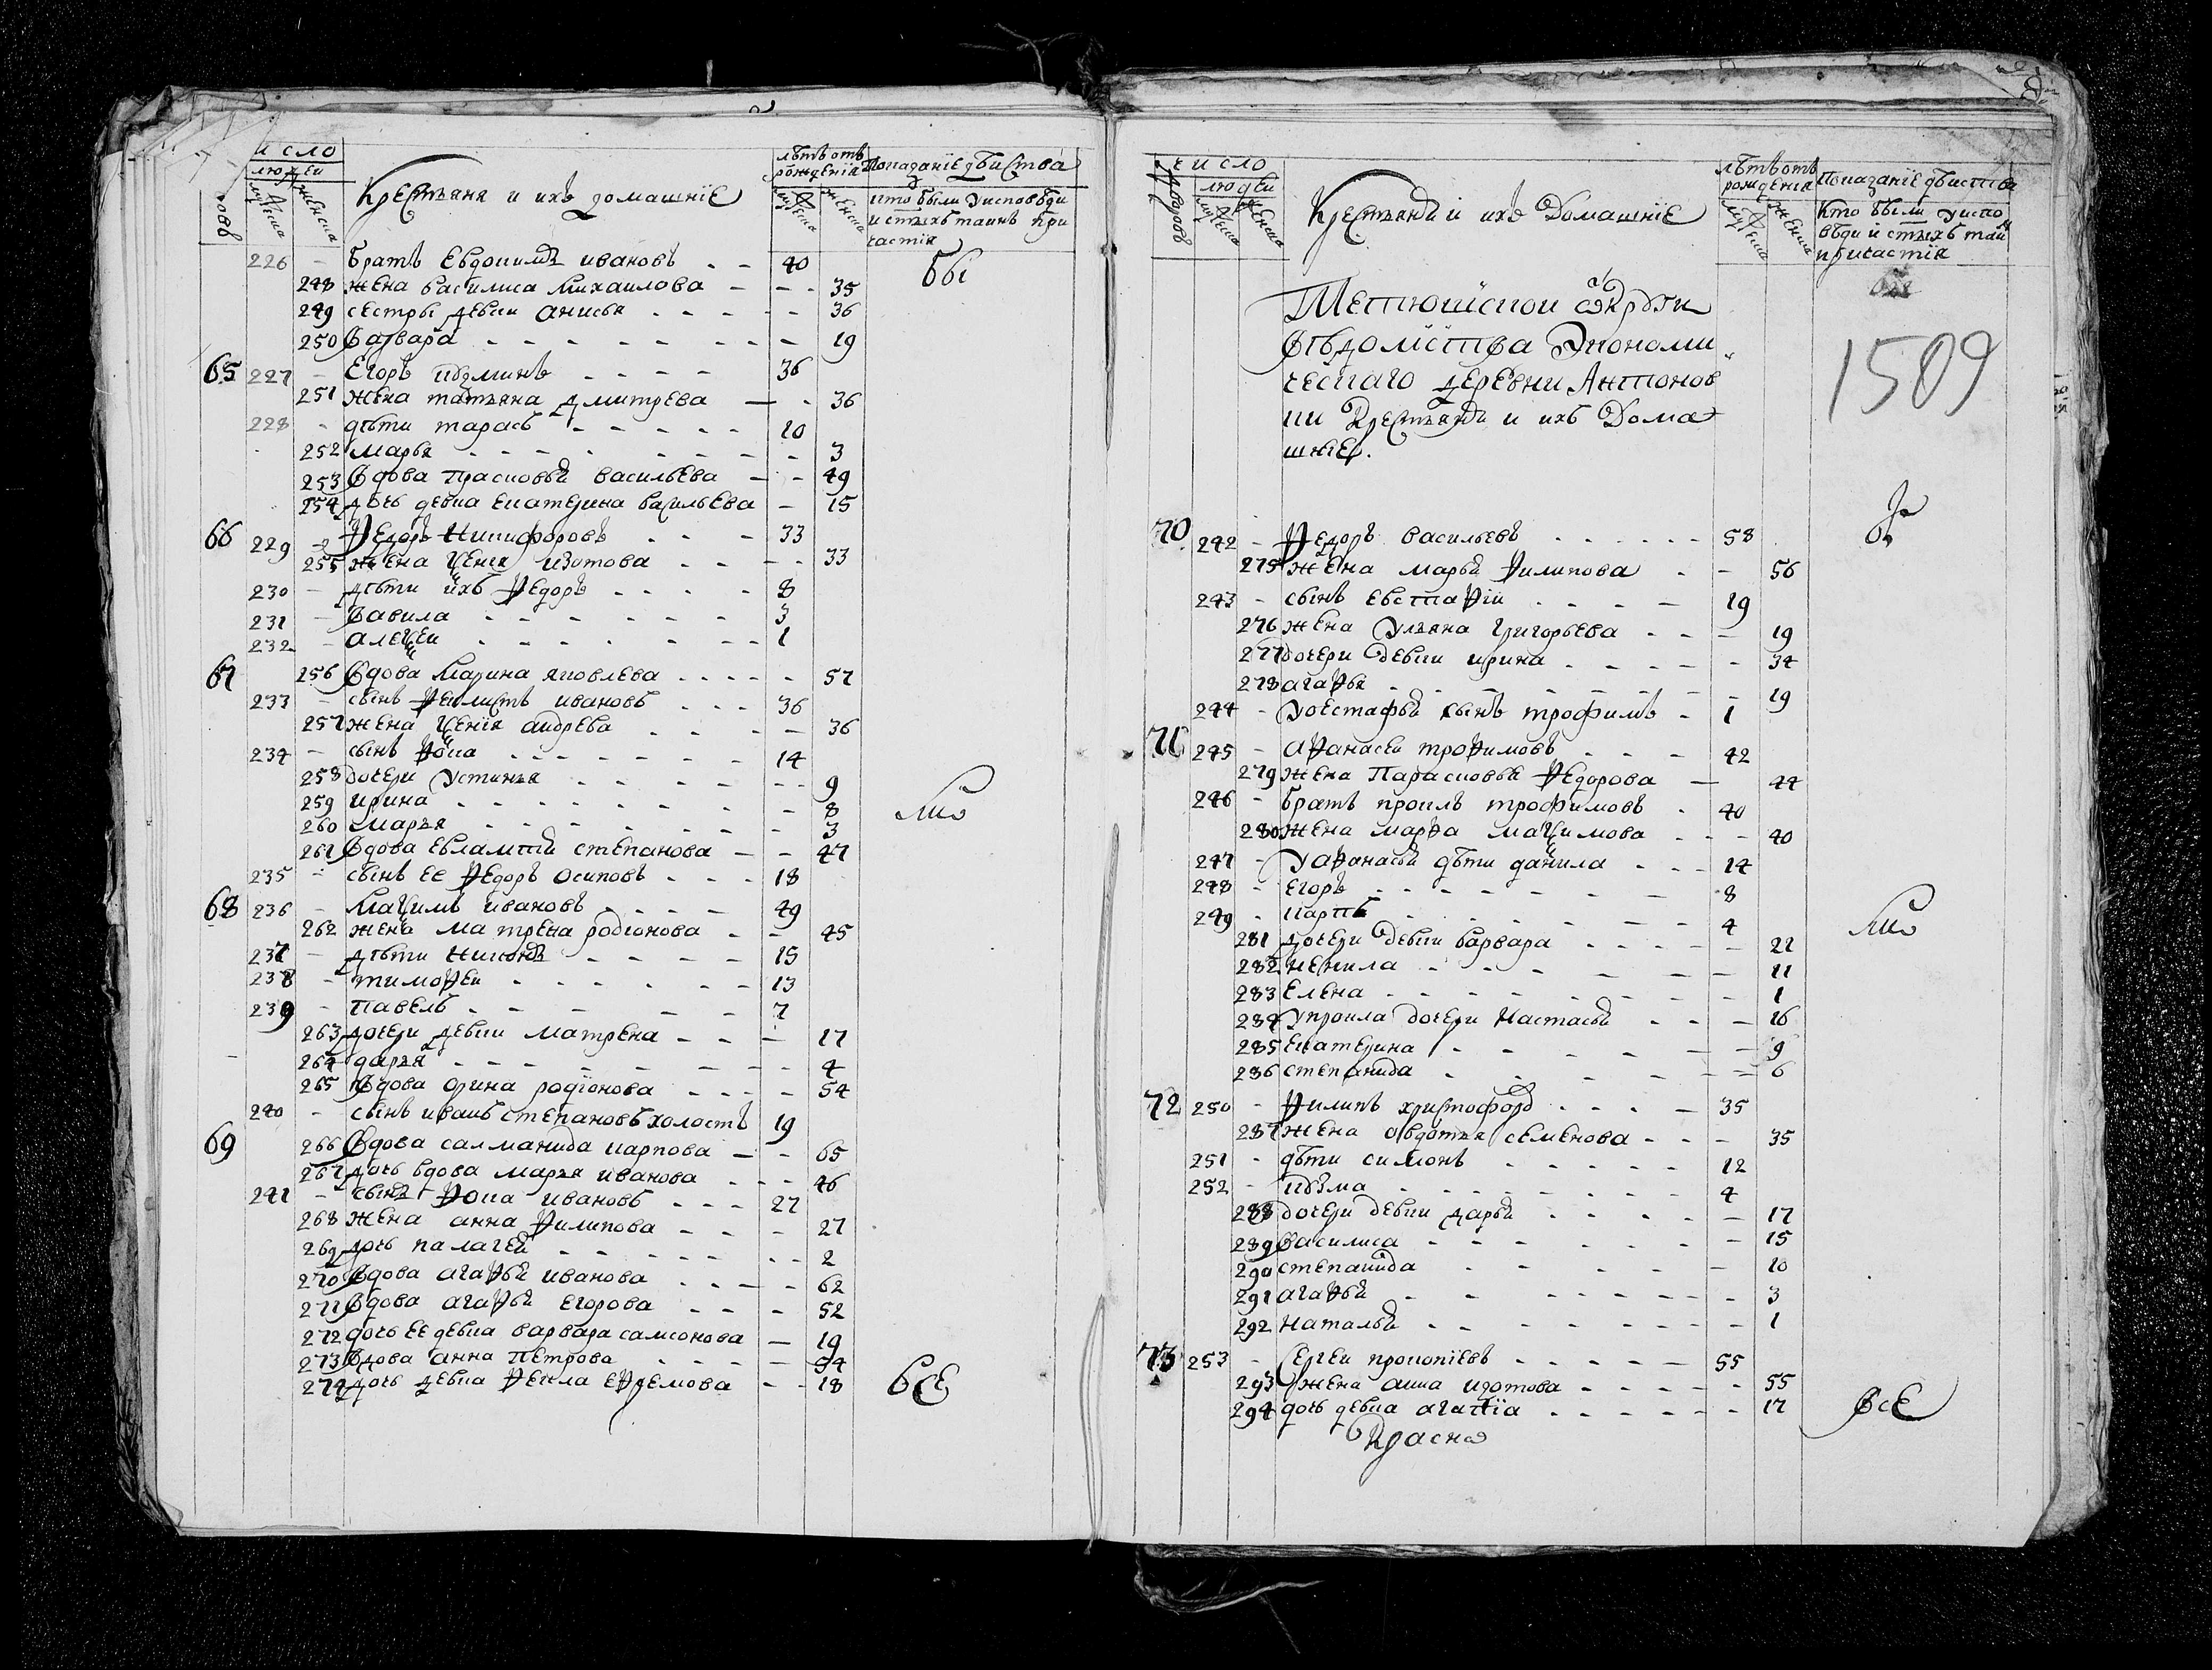 число
людей
дворовъ мужеска женска
Крестьяня и ихъ домашніе
лѣтъ отъ рожденія
мужеска женска
Показаніе дѣйства
кто были у исповѣди
и стыхъ таинъ при
частія
226 - братъ Евдокимъ ивановъ - - 40
248 жена василиса Михаилова - - - 35 бы
249 сестры девки анисья - - - 36
250 Варвара - - - 19
65 227 - Егоръ кузминъ - - - 36
251 жена татьяна дмитрева - - 36
228 - дѣти тарасъ - - - 10
252 марья - - - 3
253 Вдова Прасковья васильева - - 49
254 дочь девка Екатерина васильева - 15
66 229 - Ѳедоръ Никифоровъ - - - 33
255 жена ѯенія изотова - - - 33
230 - дѣти ихъ Ѳедоръ - - - 8
231 - Вавила - - - 3
232 - алеѯей - - - 1
67 256 Вдова Марина яковлева - - - 57
233 - сынъ Ѳеклистъ ивановъ - - - 36
257 жена ѯенія андрева - - - 36
234 - сынъ Ѳока - - - 14
258 дочери Устинья - - - 9
259 ирина - - - 8 ли
260 марья - - - 3
261 Вдова Евлампія степанова - - 47
235 - сынъ ее Ѳедоръ Осиповъ - - - 18
68 236 - Маѯимъ ивановъ - - - 49
262 жена матрена родіонова - - 45
237 - дѣти Никонъ - - - 15
238 - тимоѲей - - - 13
239 - Павелъ - - - 7
263 дочери девки матрена - - - 17
264 дарья - - - 4
265 Вдова орина родіонова - - - 54
240 - сынъ иванъ степановъ холостъ 19
69 266 Вдова салманида карпова - - 65
267 дочь вдова марья иванова - - - 46
241 - сынъ Ѳока ивановъ - - - 27
268 жена анна Ѳилипова - - - 27
269 дочь палагея - - - 2
270 Вдова агаѲья иванова - - - 62
271 Вдова агаѲья Егорова - - - 52
272 дочь ее девка варвара самсонова - 19
273 Вдова анна Петрова - - - 54
274 дочь девка Ѳекла ЕѲремова - - 18 все
число
людей
дворовъ мужеска женска
Крестьяня и ихъ Домашніе
лѣтъ отъ рожденія
мужеска женска
Показаніе дѣйства
Кто были у испо
вѣди и стыхъ таинъ
причастія
Тетюшской округи
Вѣдомства Экономи
ческаго деревни Антонов
ки Крестьяня и ихъ Дома
шніе.
1509
70 242 - Ѳедоръ васильевъ - - - 58
275 жена марья Ѳилипова - - 56
243 - сынъ ЕвстаѲій - - - 19
276 жена Ульяна Григорьева - - - 19
277 дочери девки ирина - - - 34
278 агаѲья - - - 19
244 - У оестафья сынъ трофимъ - 1
71 245 - аѲанасей троѲимовъ - - - 42
279 жена Парасковья Ѳедорова - 44
246 - братъ кроилъ трофимовъ - 40
280 жена марѲа маѯимова - - - 40
247 - У аѲанасья дѣти данила - - - 14
248 - Егоръ - - - 8
249 - карпъ - - - 4 ли
281 дочери девки варвара - - - 22
282 ненила - - - 11
283 Елена - - - 1
284 У кроила дочери Настасья - - - 16
285 Екатерина - - - 9
286 степанида - - - 6
72 250 - Ѳилипъ христофоръ - - - 35
287 жена авдотья семенова - - - 35
251 - дѣти симонъ - - - 12
252 - кузма - - - 4
288 дочери девки дарья - - - 17
289 василиса - - - 15
290 степанида - - - 10
291 агаѲья - - - 3
292 Наталья - - - 1
73 253 - Сергей прокопіевъ - - - 55
293 жена анна изотова - - - 55
294 дочь девка агапія - - - 17 все
Красно